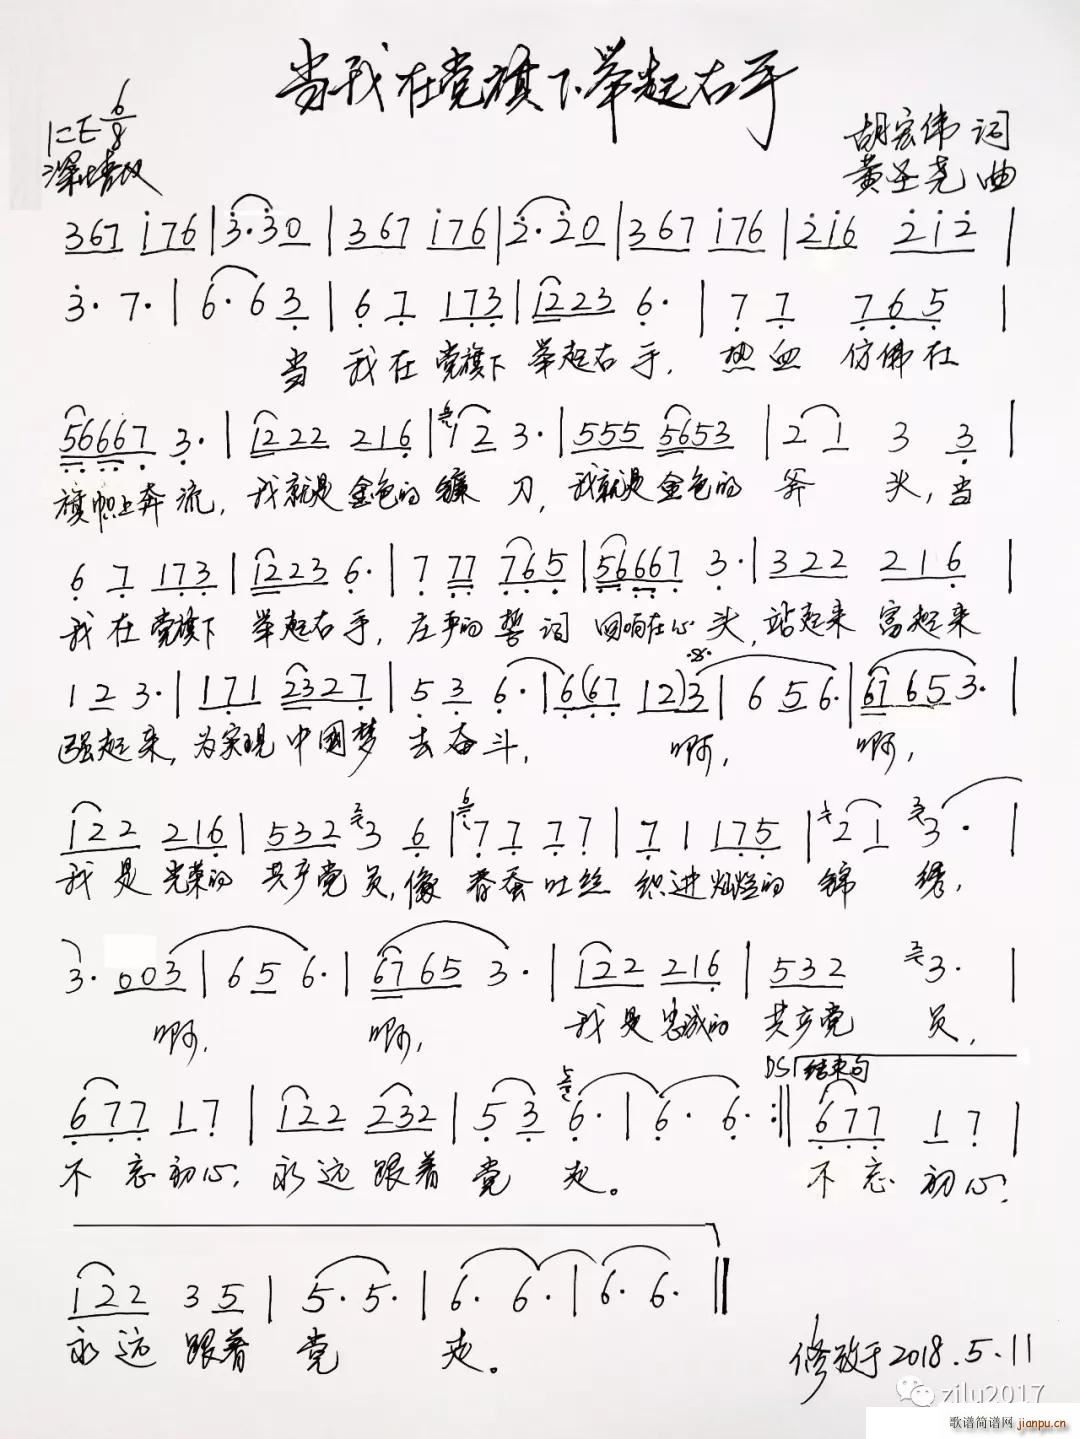 当我在党旗下举起右手
1=E 6/8
深情地
胡宏伟 词
黄圣尧 曲
367 i76 | 3·30 | 367 i76 | 2·20 | 367 i76 | 2i6 2i2 |
3· 7· | 6·6 3 | 6 7 173 | 1223 6· | 7 7 765 |
当 我在党旗下 举起右手, 热血 仿佛在
56667 3· | 1222 216 | 12 3· | 555 5653 | 21 3 3 |
旗帜上奔流, 我就是金色的镰刀, 我就是金色的斧头, 当
6 7 173 | 1223 6· | 7 77 765 | 56667 3· | 322 216 |
我在党旗下 举起右手, 庄严的誓词 回响在心头, 站起来 富起来
12 3· | 171 2327 | 53 6· | 6(67 12)3 | 656· | 6765 3· |
强起来, 为实现中国梦去奋斗, 啊, 啊,
122 216 | 532 3 6 | 7 7 7 7 | 71 175 | 21 3· |
我是光荣的共产党员, 像春蚕吐丝 织进灿烂的锦绣,
3· 003 | 656· | 6765 3· | 122 216 | 532 3· |
啊, 啊, 我是忠诚的共产党员,
DS 结束句
677 17 | 122 232 | 53 6· | 6· 6· :‖ 677 17 |
不忘初心, 永远跟着党走。 不忘初心,
122 35 | 5· 5· | 6· 6· | 6· 6· ‖
永远跟着党走。
修改于2018.5.11
zilu2017
歌谱简谱网
jianpu.cn